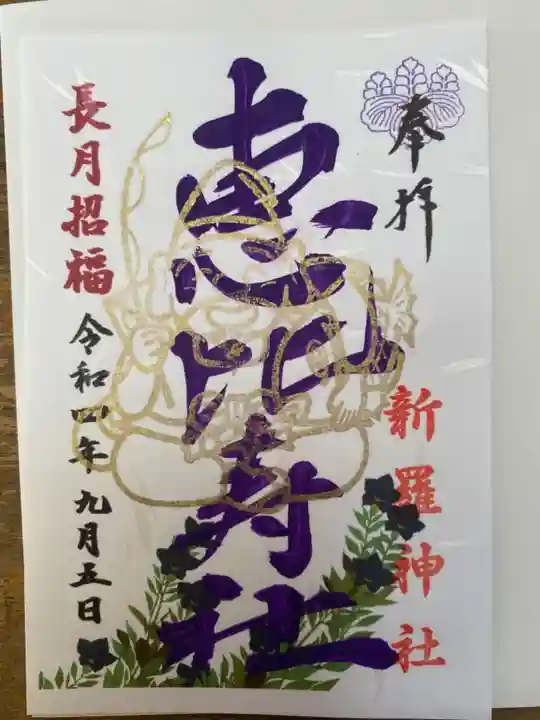 奉拝
新羅神社
恵比寿社
長月招福
令和四年九月五日